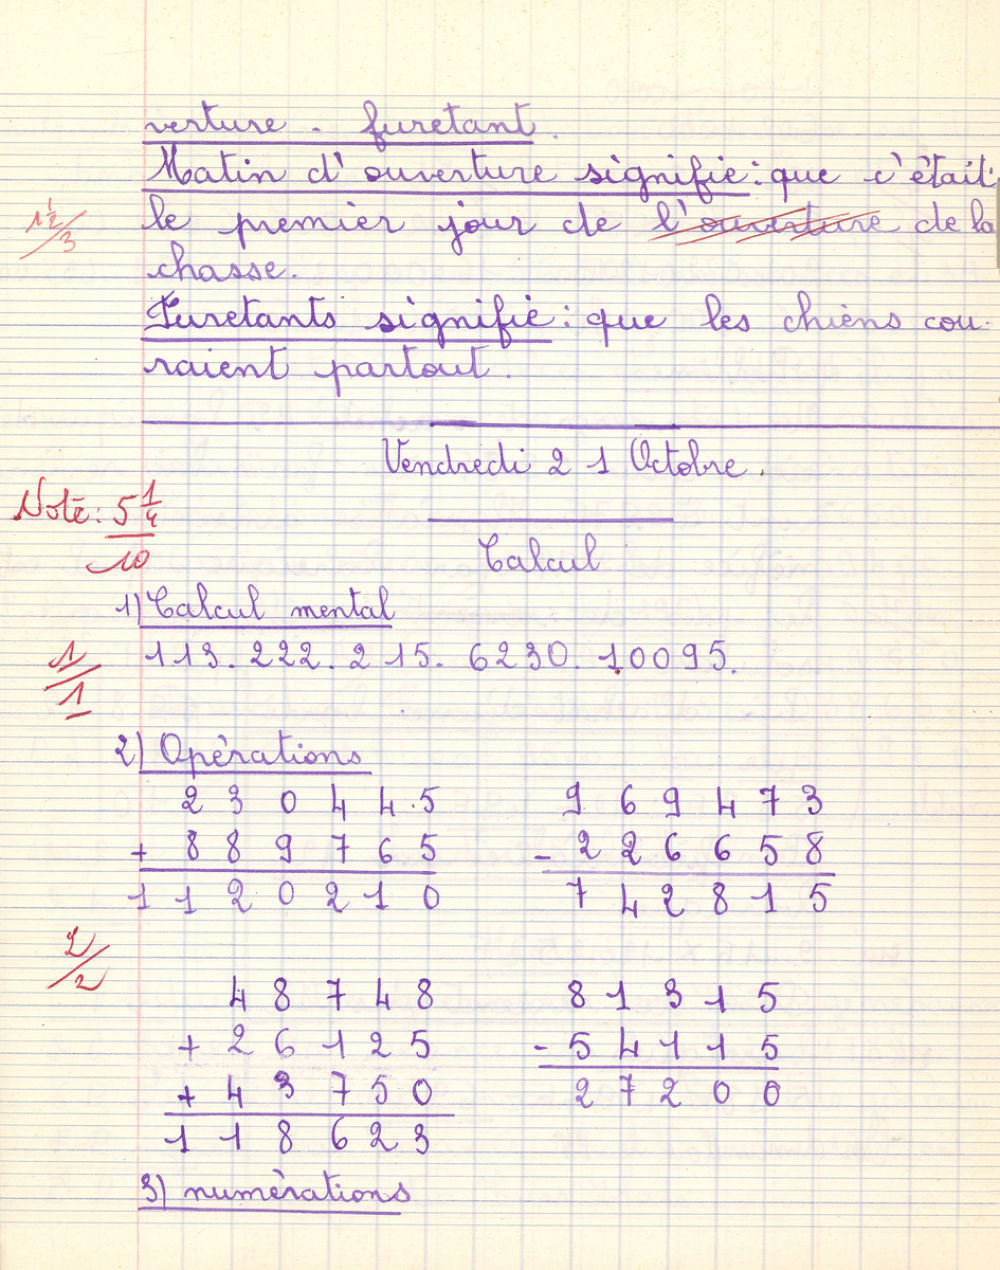 verture - furetant.
Matin d'ouverture signifie: que c'était
1 1/2 /3
le premier jour de l'ouverture de la
chasse.
Furetants signifie: que les chiens cou-
raient partout.
Vendredi 21 Octobre.
Note: 5 1/4
10
Calcul
1) Calcul mental
1/1
113. 222. 215. 6230. 10095.
2) Opérations
230445 969473
+ 889765 - 226658
1120210 742815
2/2
48748 81315
+ 26125 - 54115
+ 43750 27200
118623
3) numérations